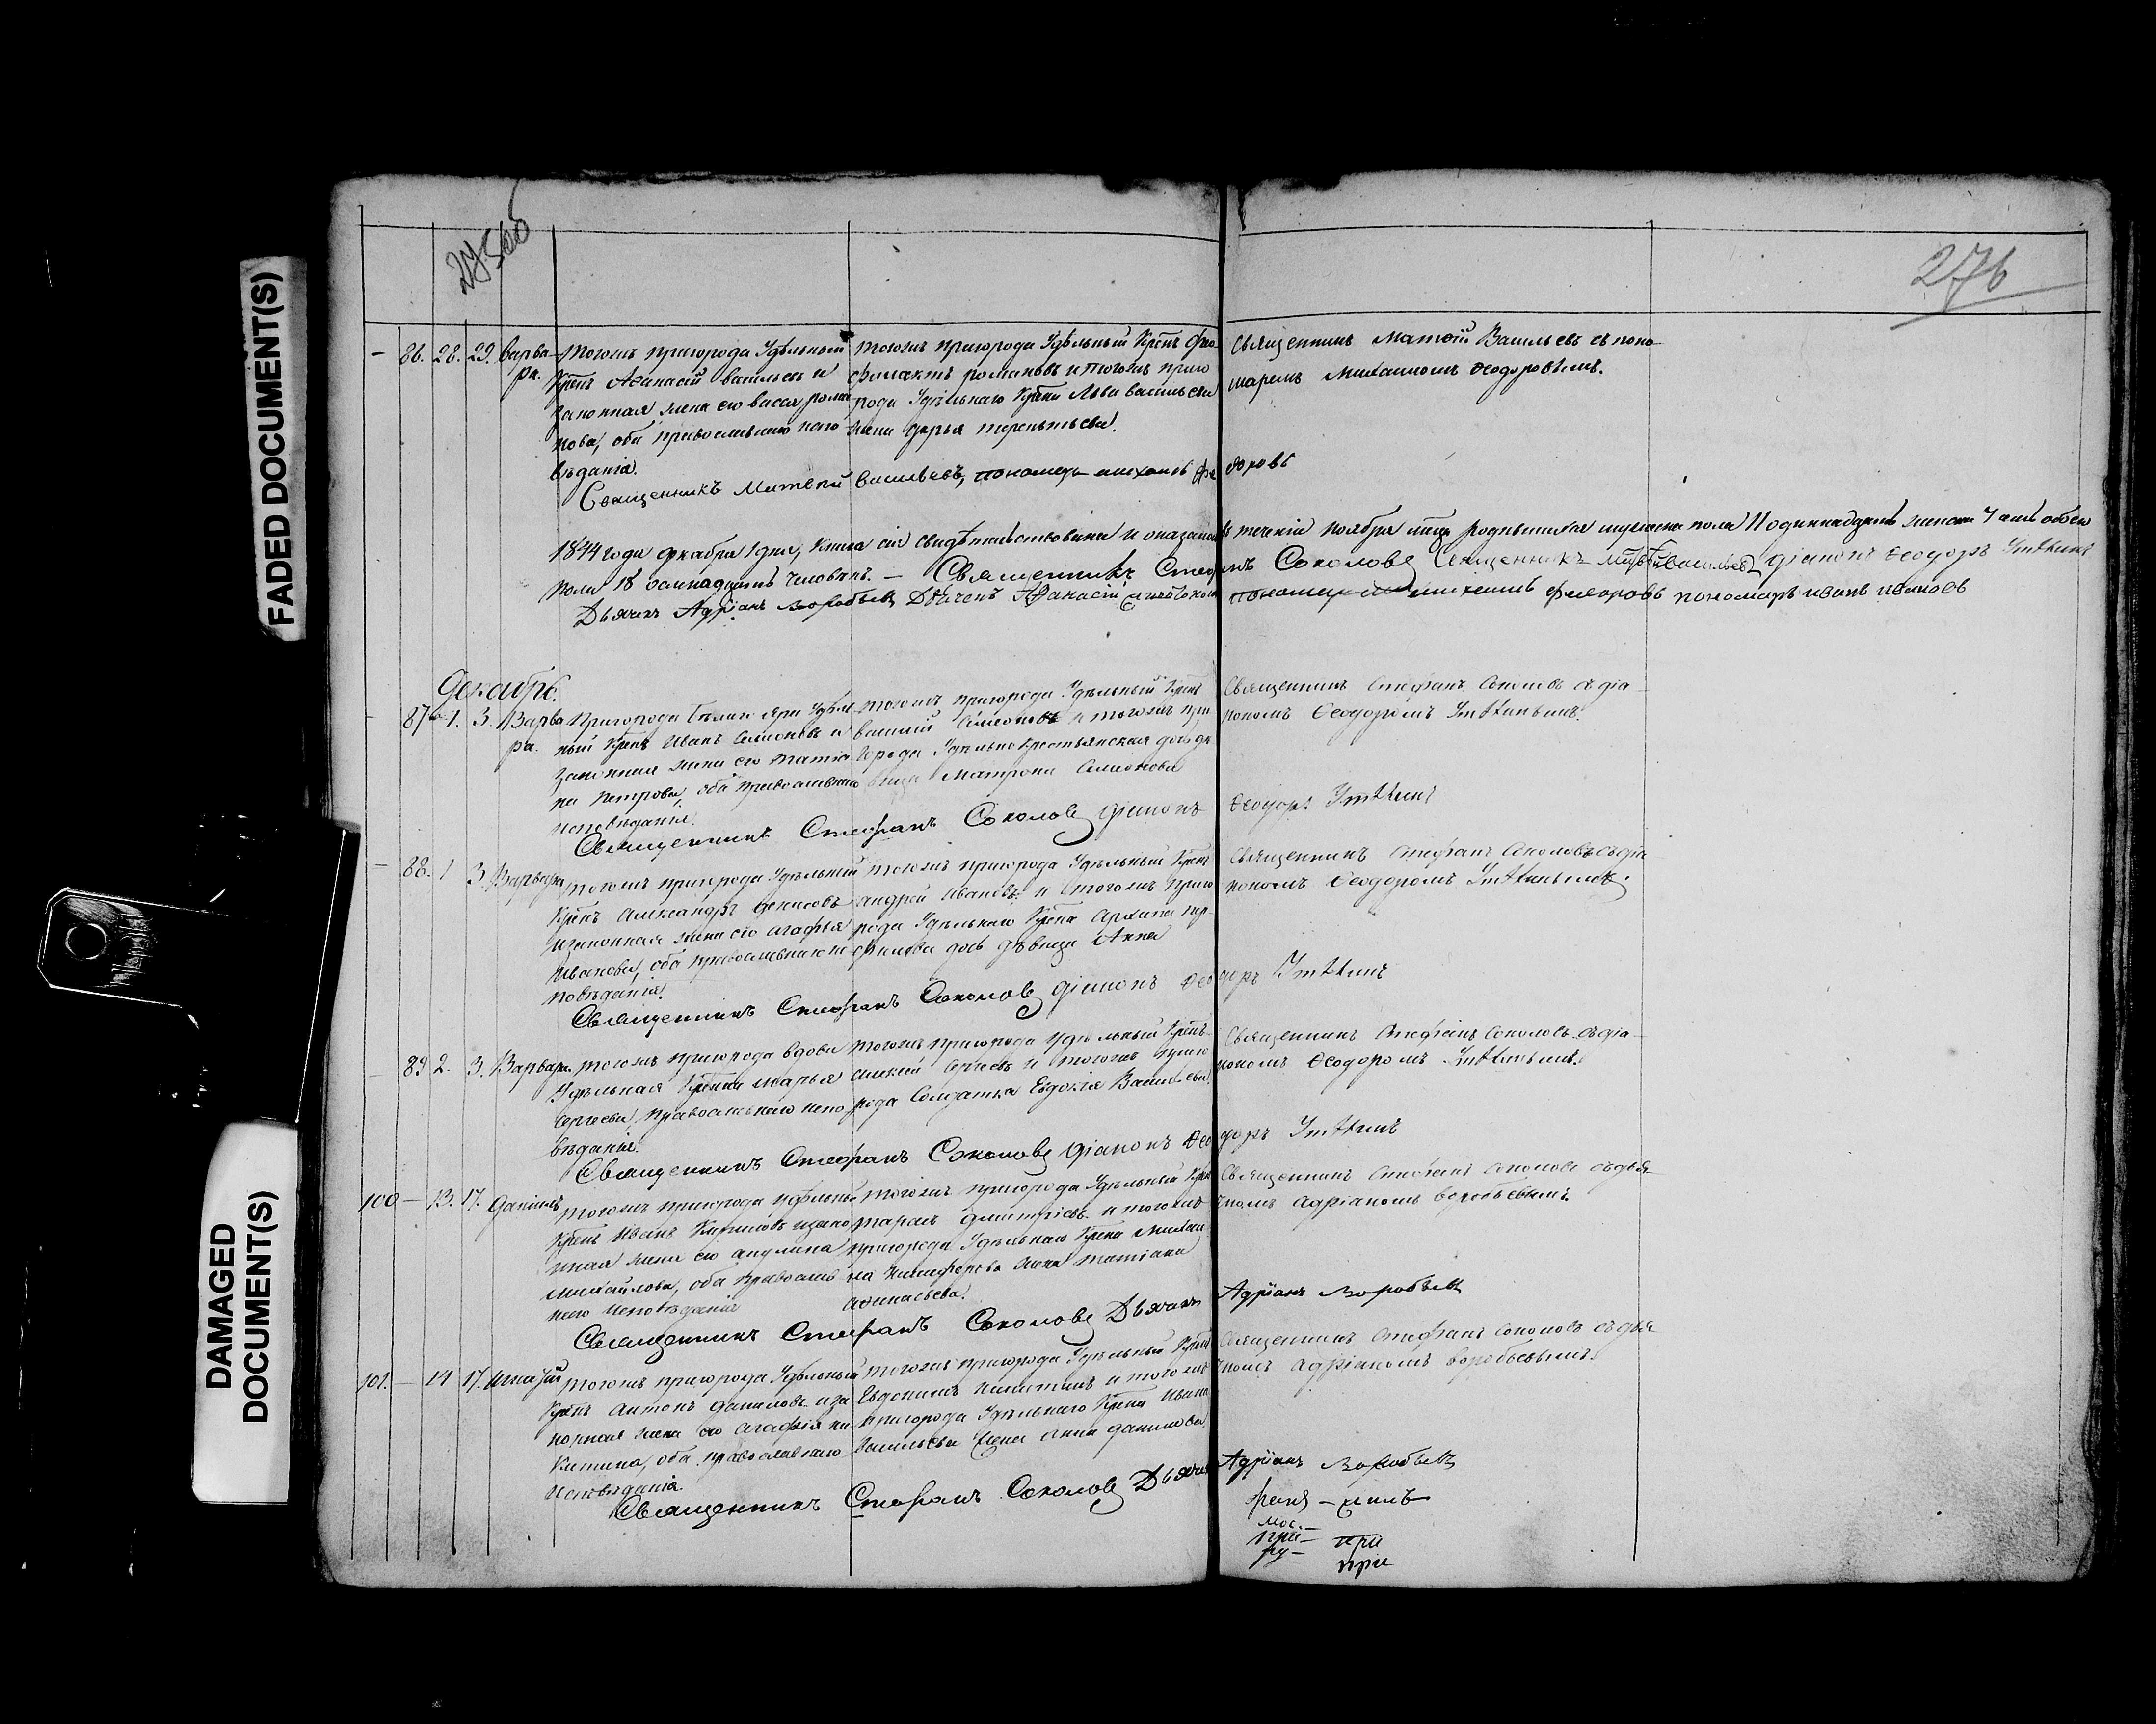 FADED DOCUMENT(S)
DAMAGED
DOCUMENT(S)
276
86. 28. 29. Варва-
ра.
Тогожъ пригорода Удѣльный
Крнъ Аѳанасій васильевъ и
законная жена его васса рома
нова, оба православнаго испо
вѣданія.
Тогожъ пригорода Удѣльный Крнъ Ѳео
филактъ романовъ и тогожъ приго
рода Удѣльнаго Крнна Льва васильева
жена дарья терентьева.
Священникъ Матѳій Васильевъ съ поно
маремъ Михаиломъ Ѳеодоровымъ.
Священникъ Матвѣй Васильевъ, пономарь михаилъ федоровъ
1844 года декабря 1 дня, книга сія свидѣтельствована и оказалось въ теченіи ноября мца родившихся мужеска пола 11 одиннадцать женска 7 а обоего
пола 18 осмнадцать человѣкъ. — Священникъ Стефанъ Соколовъ Священникъ Матвѣй Васильевъ діаконъ Ѳеодоръ
Дьячекъ Адріанъ Воробьевъ Дьячекъ Аѳанасій пономарь михаилъ федоровъ пономарь иванъ ивановъ
Декабрь.
87 1. 3. Варва
ра.
Пригорода Удѣл
ный Крнъ Иванъ Семеновъ и
законная жена его татіа
на Петрова, оба православнаго
исповѣданія.
тогожъ пригорода Удѣльный Крнъ
василій Симеоновъ и тогожъ при
города Удѣльнокрестьянская дочь дѣ
вица Матрона Симеонова
Священникъ Стефанъ Соколовъ съ діа
кономъ Ѳеодоромъ
Священникъ Стефанъ Соколовъ діаконъ Ѳеодоръ
88. 1 3 Варвара
тогожъ пригорода Удѣльный
Крнъ Александръ денисовъ
и законная жена его агафья
Иванова, оба православнаго ис
повѣданія.
тогожъ пригорода Удѣльный Крнъ
андрей Ивановъ и тогожъ приго
рода Удѣльнаго Крнна Архипа
дочь дѣвица Анна
Священникъ Стефанъ Соколовъ съ діа
кономъ Ѳеодоромъ
Священникъ Стефанъ Соколовъ діаконъ Ѳеодоръ
89 2. 3. Варвара.
тогожъ пригорода вдова
Удѣльная Крнка марья
Сергеева, православнаго испо
вѣданія.
тогожъ пригорода Удѣльный Крнъ
алексій Сергеевъ и тогожъ приго
рода Солдатка Евдокія Васильева.
Священникъ Стефанъ Соколовъ съ діа
кономъ Ѳеодоромъ
Священникъ Стефанъ Соколовъ діаконъ Ѳеодоръ
100 — 13. 17. Даніилъ
тогожъ пригорода Удѣльный
Крнъ Иванъ Кириловъ и зако
нная жена его акулина
михайлова, оба православ
наго исповѣданія
тогожъ пригорода Удѣльный Крнъ
тарасъ дмитріевъ и тогожъ
пригорода Удѣльнаго Крнна Михаи
ла Никифорова жена татіана
аѳанасьева.
Священникъ Стефанъ Соколовъ съ дья
чкомъ адріаномъ воробьевымъ.
Священникъ Стефанъ Соколовъ Дьячекъ Адріанъ Воробьевъ
101. — 14 17. Игнатій
Тогожъ пригорода Удѣльный
Крнъ Антонъ даниловъ и за
конная жена его агафья ни
китина, оба православнаго
исповѣданія.
тогожъ пригорода Удѣльный Крнъ
Евдокимъ никитинъ и тогожъ
пригорода Удѣльнаго Крнна Ивана
васильева жена Анна данилова.
Священникъ Стефанъ Соколовъ съ дья
чкомъ адріаномъ воробьевымъ.
Священникъ Стефанъ Соколовъ Дьячекъ Адріанъ Воробьевъ
при— при
при